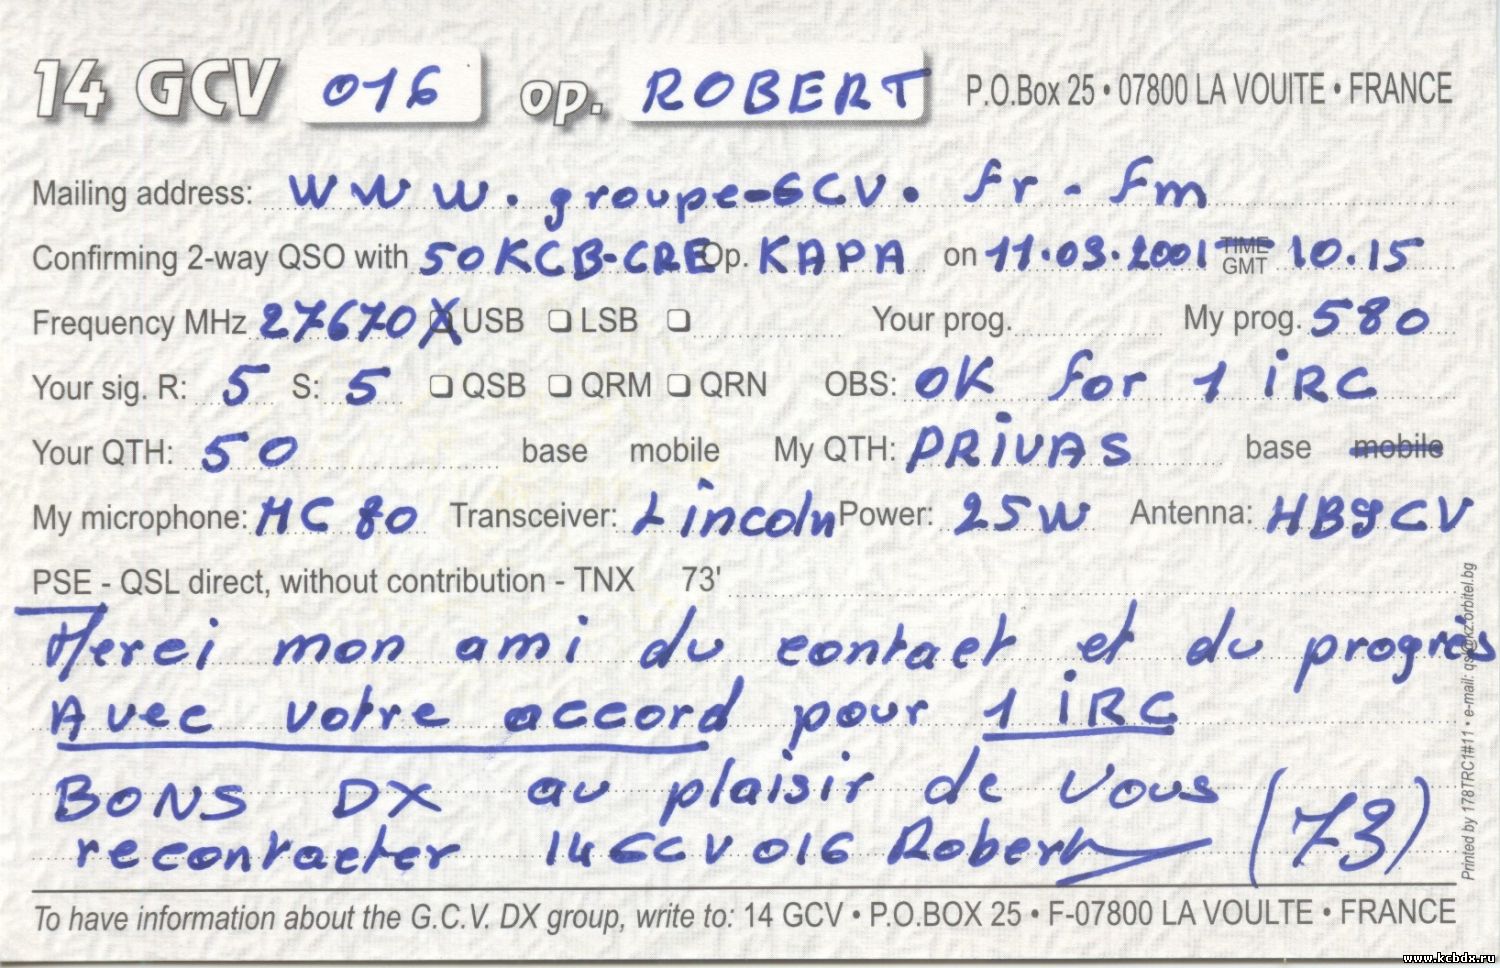 14 GCV 016 op. ROBERT P.O.Box 25 • 07800 LA VOUITE • FRANCE
Mailing address: www.groupe-GCV. fr - fm
Confirming 2-way QSO with 50KCB-CRE Op. KAPA on 11.03.2001 TIME GMT 10.15
Frequency MHz 27670 X USB LSB Your prog. My prog. 580
Your sig. R: 5 S: 5 QSB QRM QRN OBS: OK for 1 iRC
Your QTH: 50 base mobile My QTH: PRiVAS base mobile
My microphone: MC 80 Transceiver: Lincoln Power: 25W Antenna: HB9CV
PSE - QSL direct, without contribution - TNX 73'
Merci mon ami du contact et du progrès
Avec votre accord pour 1 iRC
BONS DX au plaisir de Vous
recontacter 14GCV016 Robert (73)
To have information about the G.C.V. DX group, write to: 14 GCV • P.O.BOX 25 • F-07800 LA VOULTE • FRANCE
Printed by 178TRC1#11 • e-mail: qsl@kz.orbitel.bg
www.kcbdx.ru